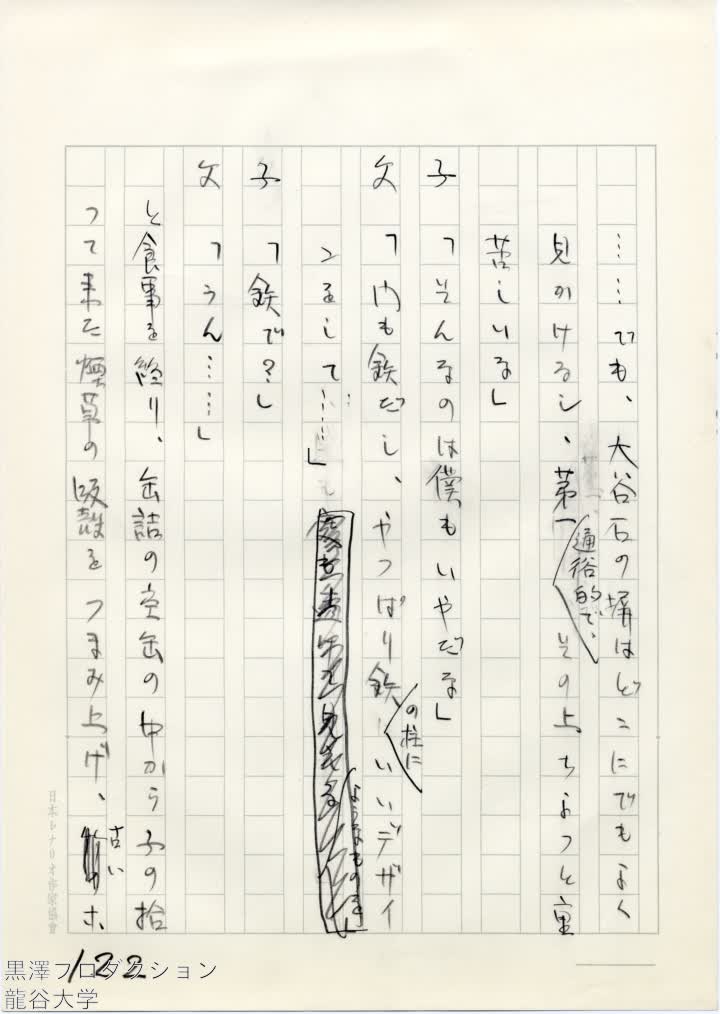 ……でも、大谷石の塀はどこにでもよく
見かけるし、第一通俗的で、その上ちょっと重
苦しいな」
子 「そんなのは僕もいやだな」
父 「門も鉄だし、やっぱり鉄の柱にいいデザイ
ンをして……」
子 「鉄で?」
父 「うん……」
と食事を終り、缶詰の空缶の中から子の拾
って来た煙草の吸殻をつまみ上げ、古いホ、
日本シナリオ作家協會
122
黒澤プロダクション
龍谷大学